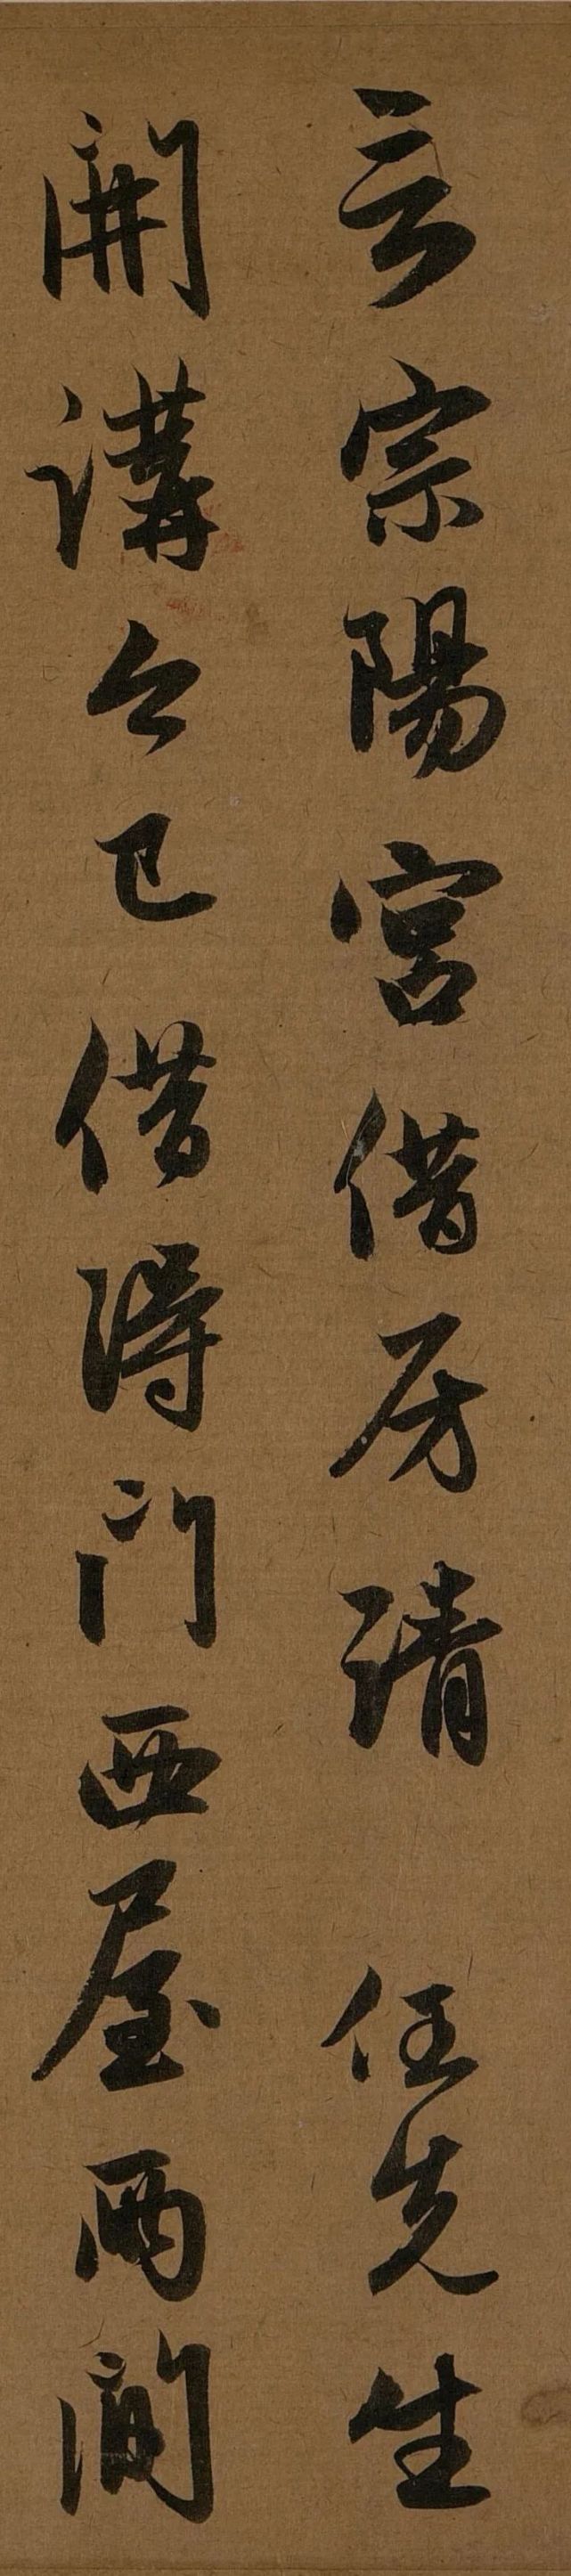 言宗陽宮借房請　任先生
開講今已借得門西屋兩間